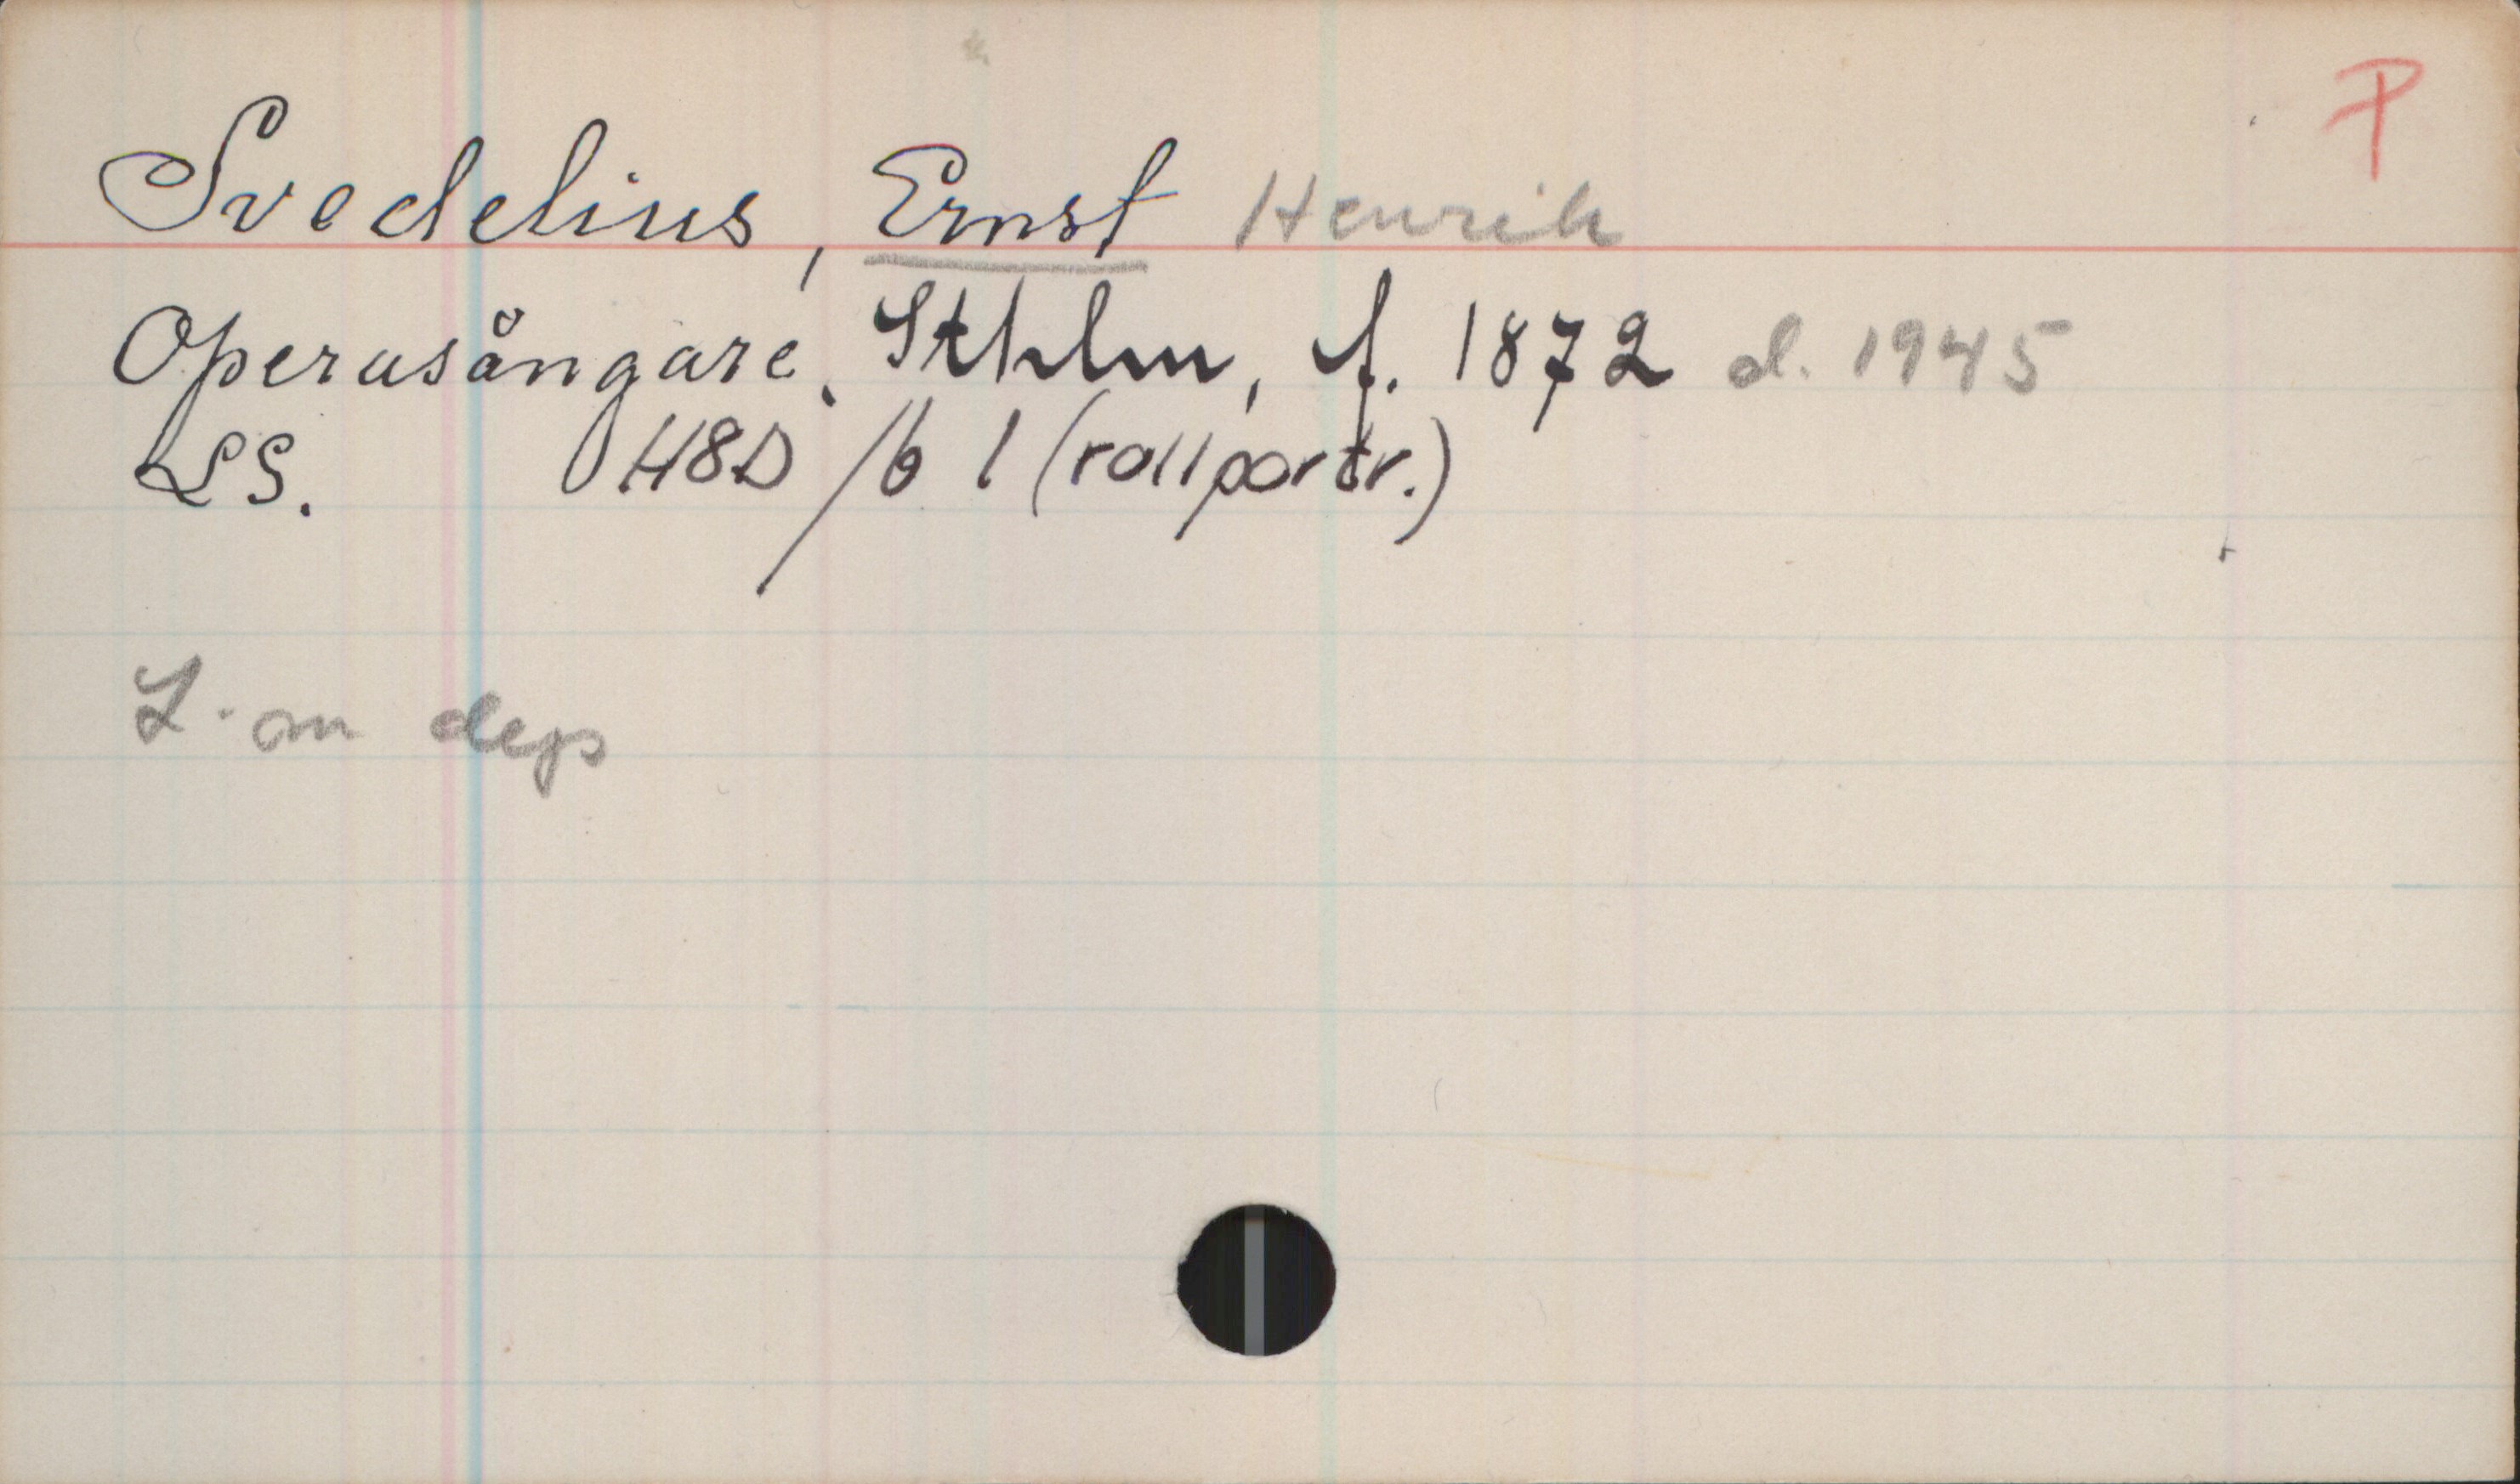 P
Svedelius, Ernst Henrik
Operasångare. Sthlm, f. 1872 d. 1945
LS. H8D/6 1 (rollportr.)
L. on deps